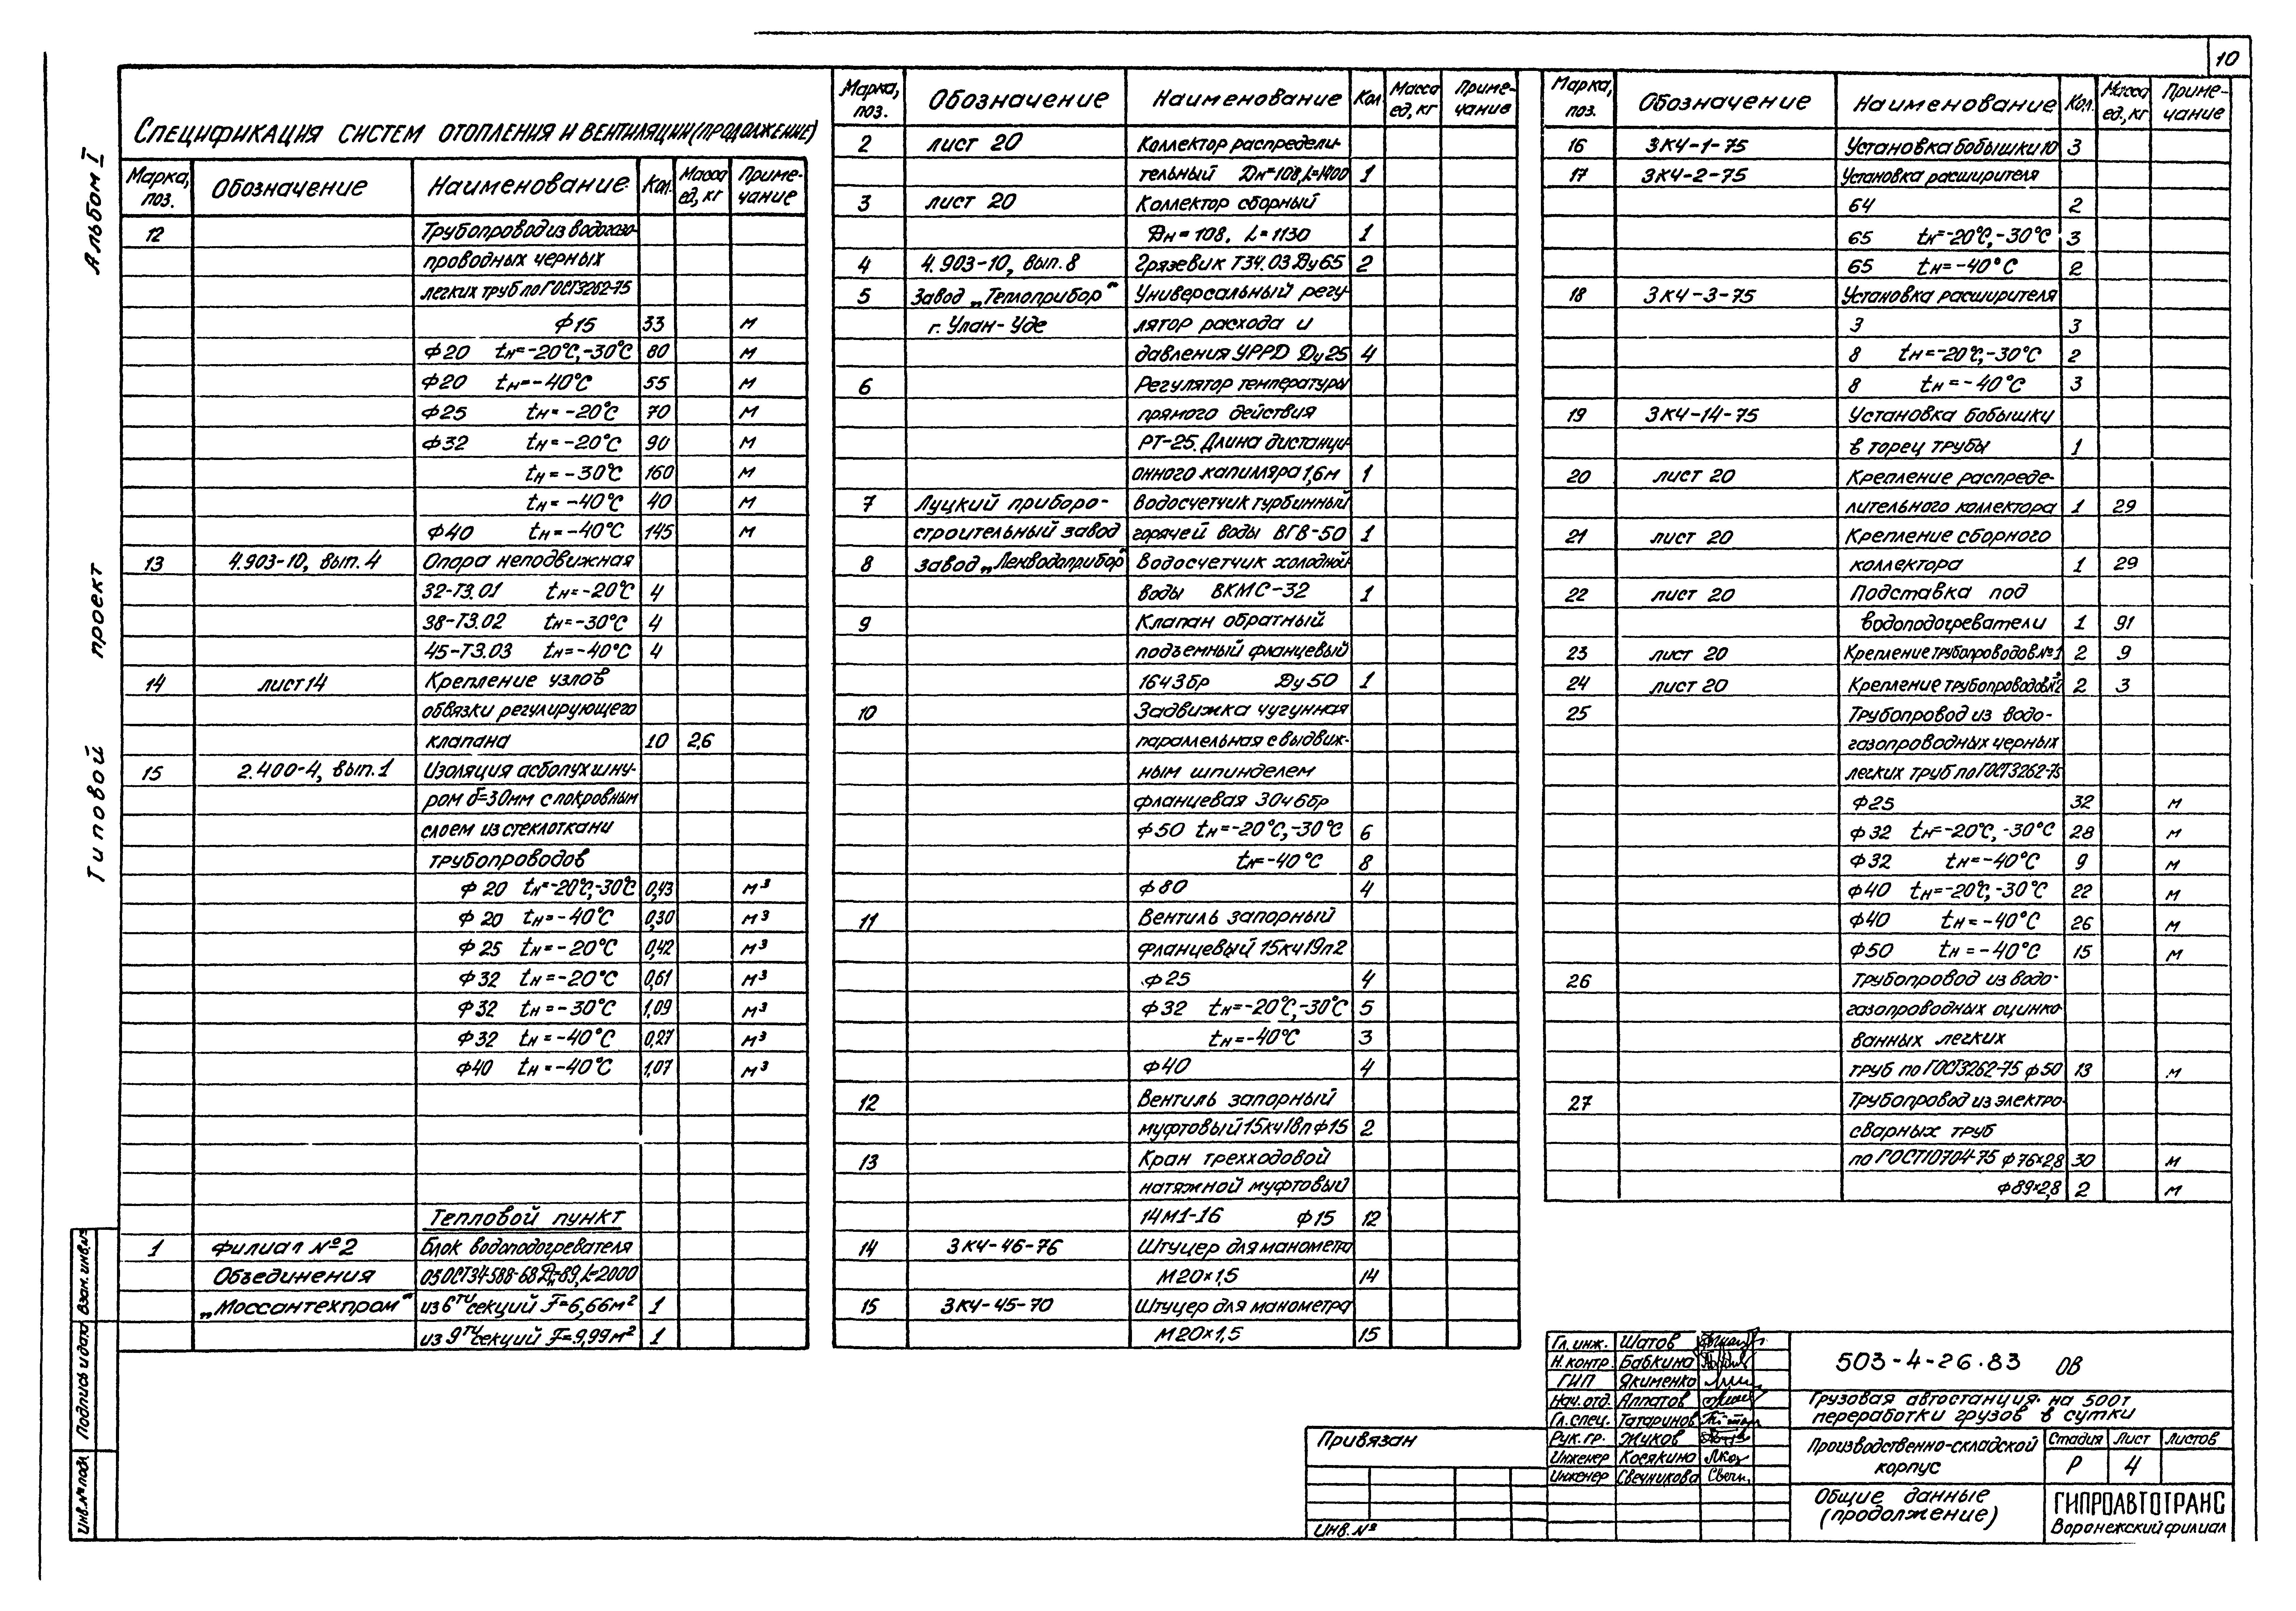 10
Альбом I
Типовой проект
Спецификация систем отопления и вентиляции (продолжение)
Марка, поз. Обозначение Наименование Кол. Масса ед, кг Приме-чание
12 Трубопровод из водогазо-
проводных черных
легких труб по ГОСТ 3262-75
Ф15 33 м
Ф20 tн=-20°С,-30°С 80 м
Ф20 tн=-40°С 55 м
Ф25 tн=-20°С 70 м
Ф32 tн=-20°С 90 м
tн=-30°С 160 м
tн=-40°С 40 м
Ф40 tн=-40°С 145 м
13 4.903-10, вып. 4 Опора неподвижная
32-Т3.01 tн=-20°С 4
38-Т3.02 tн=-30°С 4
45-Т3.03 tн=-40°С 4
14 лист 14 Крепление узлов
обвязки регулирующего
клапана 10 2,6
15 2.400-4, вып. 1 Изоляция асбопухшну-
ром δ=30мм с покровным
слоем из стеклоткани
трубопроводов
Ф 20 tн=-20°С,-30°С 0,43 м³
Ф 20 tн=-40°С 0,30 м³
Ф 25 tн=-20°С 0,42 м³
Ф 32 tн=-20°С 0,61 м³
Ф32 tн=-30°С 1,09 м³
Ф32 tн=-40°С 0,27 м³
Ф40 tн=-40°С 1,07 м³
Тепловой пункт
1 Филиал №2 Блок водоподогревателя
Объединения 05 ОСТ 34-588-68 Дн=89, L=2000
„Моссантехпром“ из 6ти секций F=6,66м² 1
из 9ти секций F=9,99м² 1
Марка, поз. Обозначение Наименование Кол. Масса ед, кг Приме-чание
2 лист 20 Коллектор распредели-
тельный Дн=108, L=1400 1
3 лист 20 Коллектор сборный
Дн=108, L=1130 1
4 4.903-10, вып. 8 Грязевик Т34.03 Ду65 2
5 Завод „Теплоприбор“ Универсальный регу-
г. Улан-Уде лятор расхода и
давления УРРД Ду25 4
6 Регулятор температуры
прямого действия
РТ-25. Длина дистанци-
онного капилляра 1,6м 1
7 Луцкий приборо- Водосчетчик турбинный
строительный завод горячей воды ВГВ-50 1
8 завод „Ленводоприбор“ Водосчетчик холодной
воды ВКМС-32 1
9 Клапан обратный
подъемный фланцевый
16ч3бр Ду50 1
10 Задвижка чугунная
параллельная с выдвиж-
ным шпинделем
фланцевая 30ч6бр
Ф50 tн=-20°С,-30°С 6
tн=-40°С 8
Ф80 4
11 Вентиль запорный
фланцевый 15кч19п2
Ф25 4
Ф32 tн=-20°С,-30°С 5
tн=-40°С 3
Ф40 4
12 Вентиль запорный
муфтовый 15кч18п Ф15 2
13 Кран трехходовой
натяжной муфтовый
14М1-16 Ф15 12
14 ЗКЧ-46-76 Штуцер для манометра
М20×1,5 14
15 ЗКЧ-45-70 Штуцер для манометра
М20×1,5 15
Марка, поз. Обозначение Наименование Кол. Масса ед, кг Приме-чание
16 ЗКЧ-1-75 Установка бобышки 10 3
17 ЗКЧ-2-75 Установка расширителя
64 2
65 tн=-20°С,-30°С 3
65 tн=-40°С 2
18 ЗКЧ-3-75 Установка расширителя
3 3
8 tн=-20°С,-30°С 2
8 tн=-40°С 3
19 ЗКЧ-14-75 Установка бобышки
в торец трубы 1
20 лист 20 Крепление распреде-
лительного коллектора 1 29
21 лист 20 Крепление сборного
коллектора 1 29
22 лист 20 Подставка под
водоподогреватели 1 91
23 лист 20 Крепление трубопроводов №1 2 9
24 лист 20 Крепление трубопроводов №2 2 3
25 Трубопровод из водо-
газопроводных черных
легких труб по ГОСТ 3262-75
Ф25 32 м
Ф32 tн=-20°С,-30°С 28 м
Ф32 tн=-40°С 9 м
Ф40 tн=-20°С,-30°С 22 м
Ф40 tн=-40°С 26 м
Ф50 tн=-40°С 15 м
26 Трубопровод из водо-
газопроводных оцинко-
ванных легких
труб по ГОСТ 3262-75 Ф50 13 м
27 Трубопровод из электро-
сварных труб
по ГОСТ 10704-75 Ф76×2,8 30 м
Ф89×2,8 2 м
Гл. инж. Шатов
Н. контр. Бабкина
ГИП Якименко
Нач. отд. Алпатов
Гл. спец. Татаринов
Рук. гр. Жуков
Инженер Косякина
Инженер Свечникова
503-4-26.83 ОВ
Грузовая автостанция на 500т
переработки грузов в сутки
Производственно-складской
корпус
Стадия Лист Листов
Р 4
Общие данные
(продолжение)
ГИПРОАВТОТРАНС
Воронежский филиал
Привязан
Инв. №
Инв. № подл. Подпись и дата Взам. инв. №